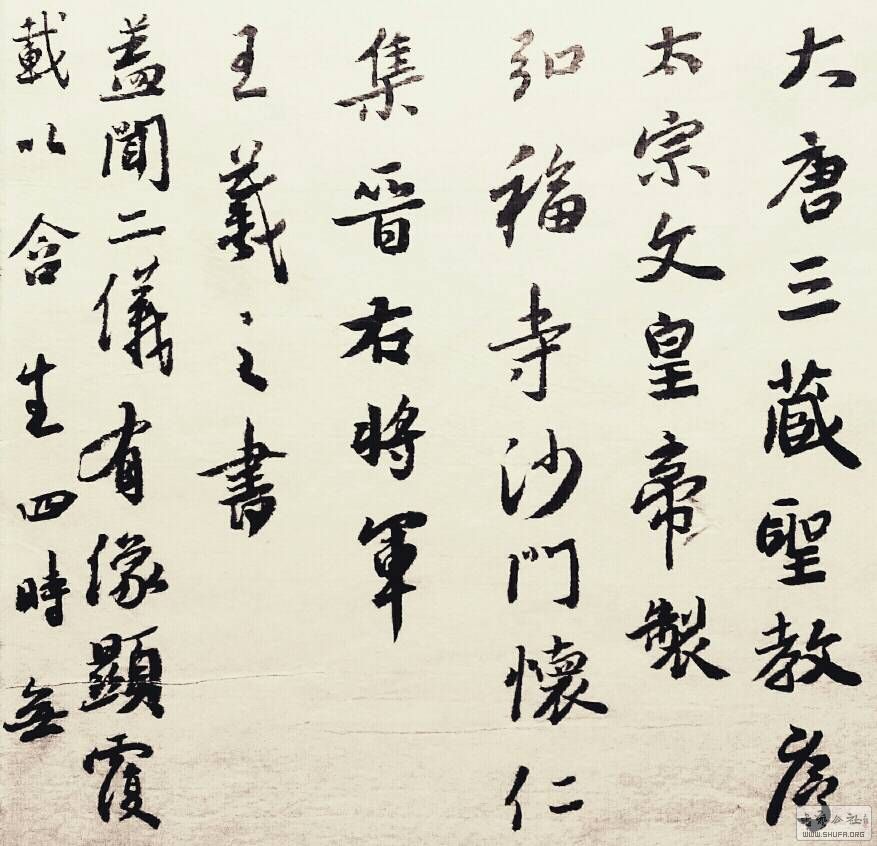 大唐三蔵聖教序
太宗文皇帝製
弘福寺沙門懷仁
集晉右將軍
王羲之書
蓋聞二儀有像顯覆
載以含生四時無
WWW.SHUFA.ORG